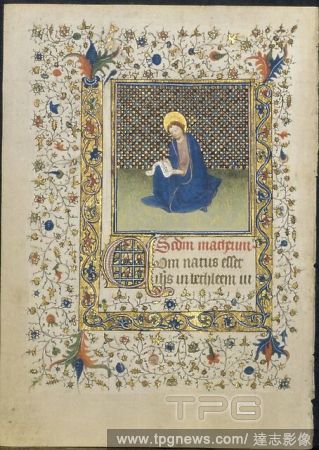 Scdm matheum
Om natus esset
ihs in bethleem iu
TPG
www.tpgnews.com/ 達志影像